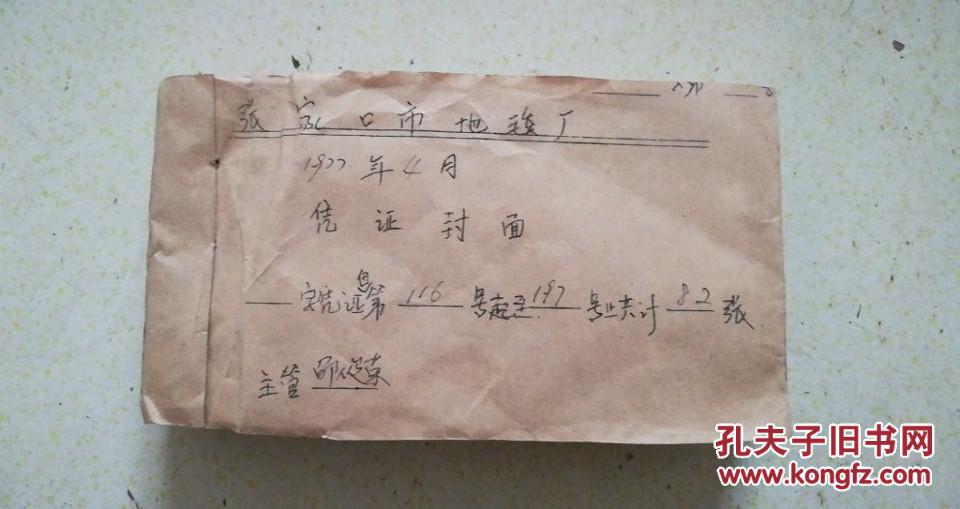 张家口市地毯厂
1977年4月
凭证封面
字凭证自第 116 号起至 197 号止共计 82 张
主管
孔夫子旧书网
www.kongfz.com